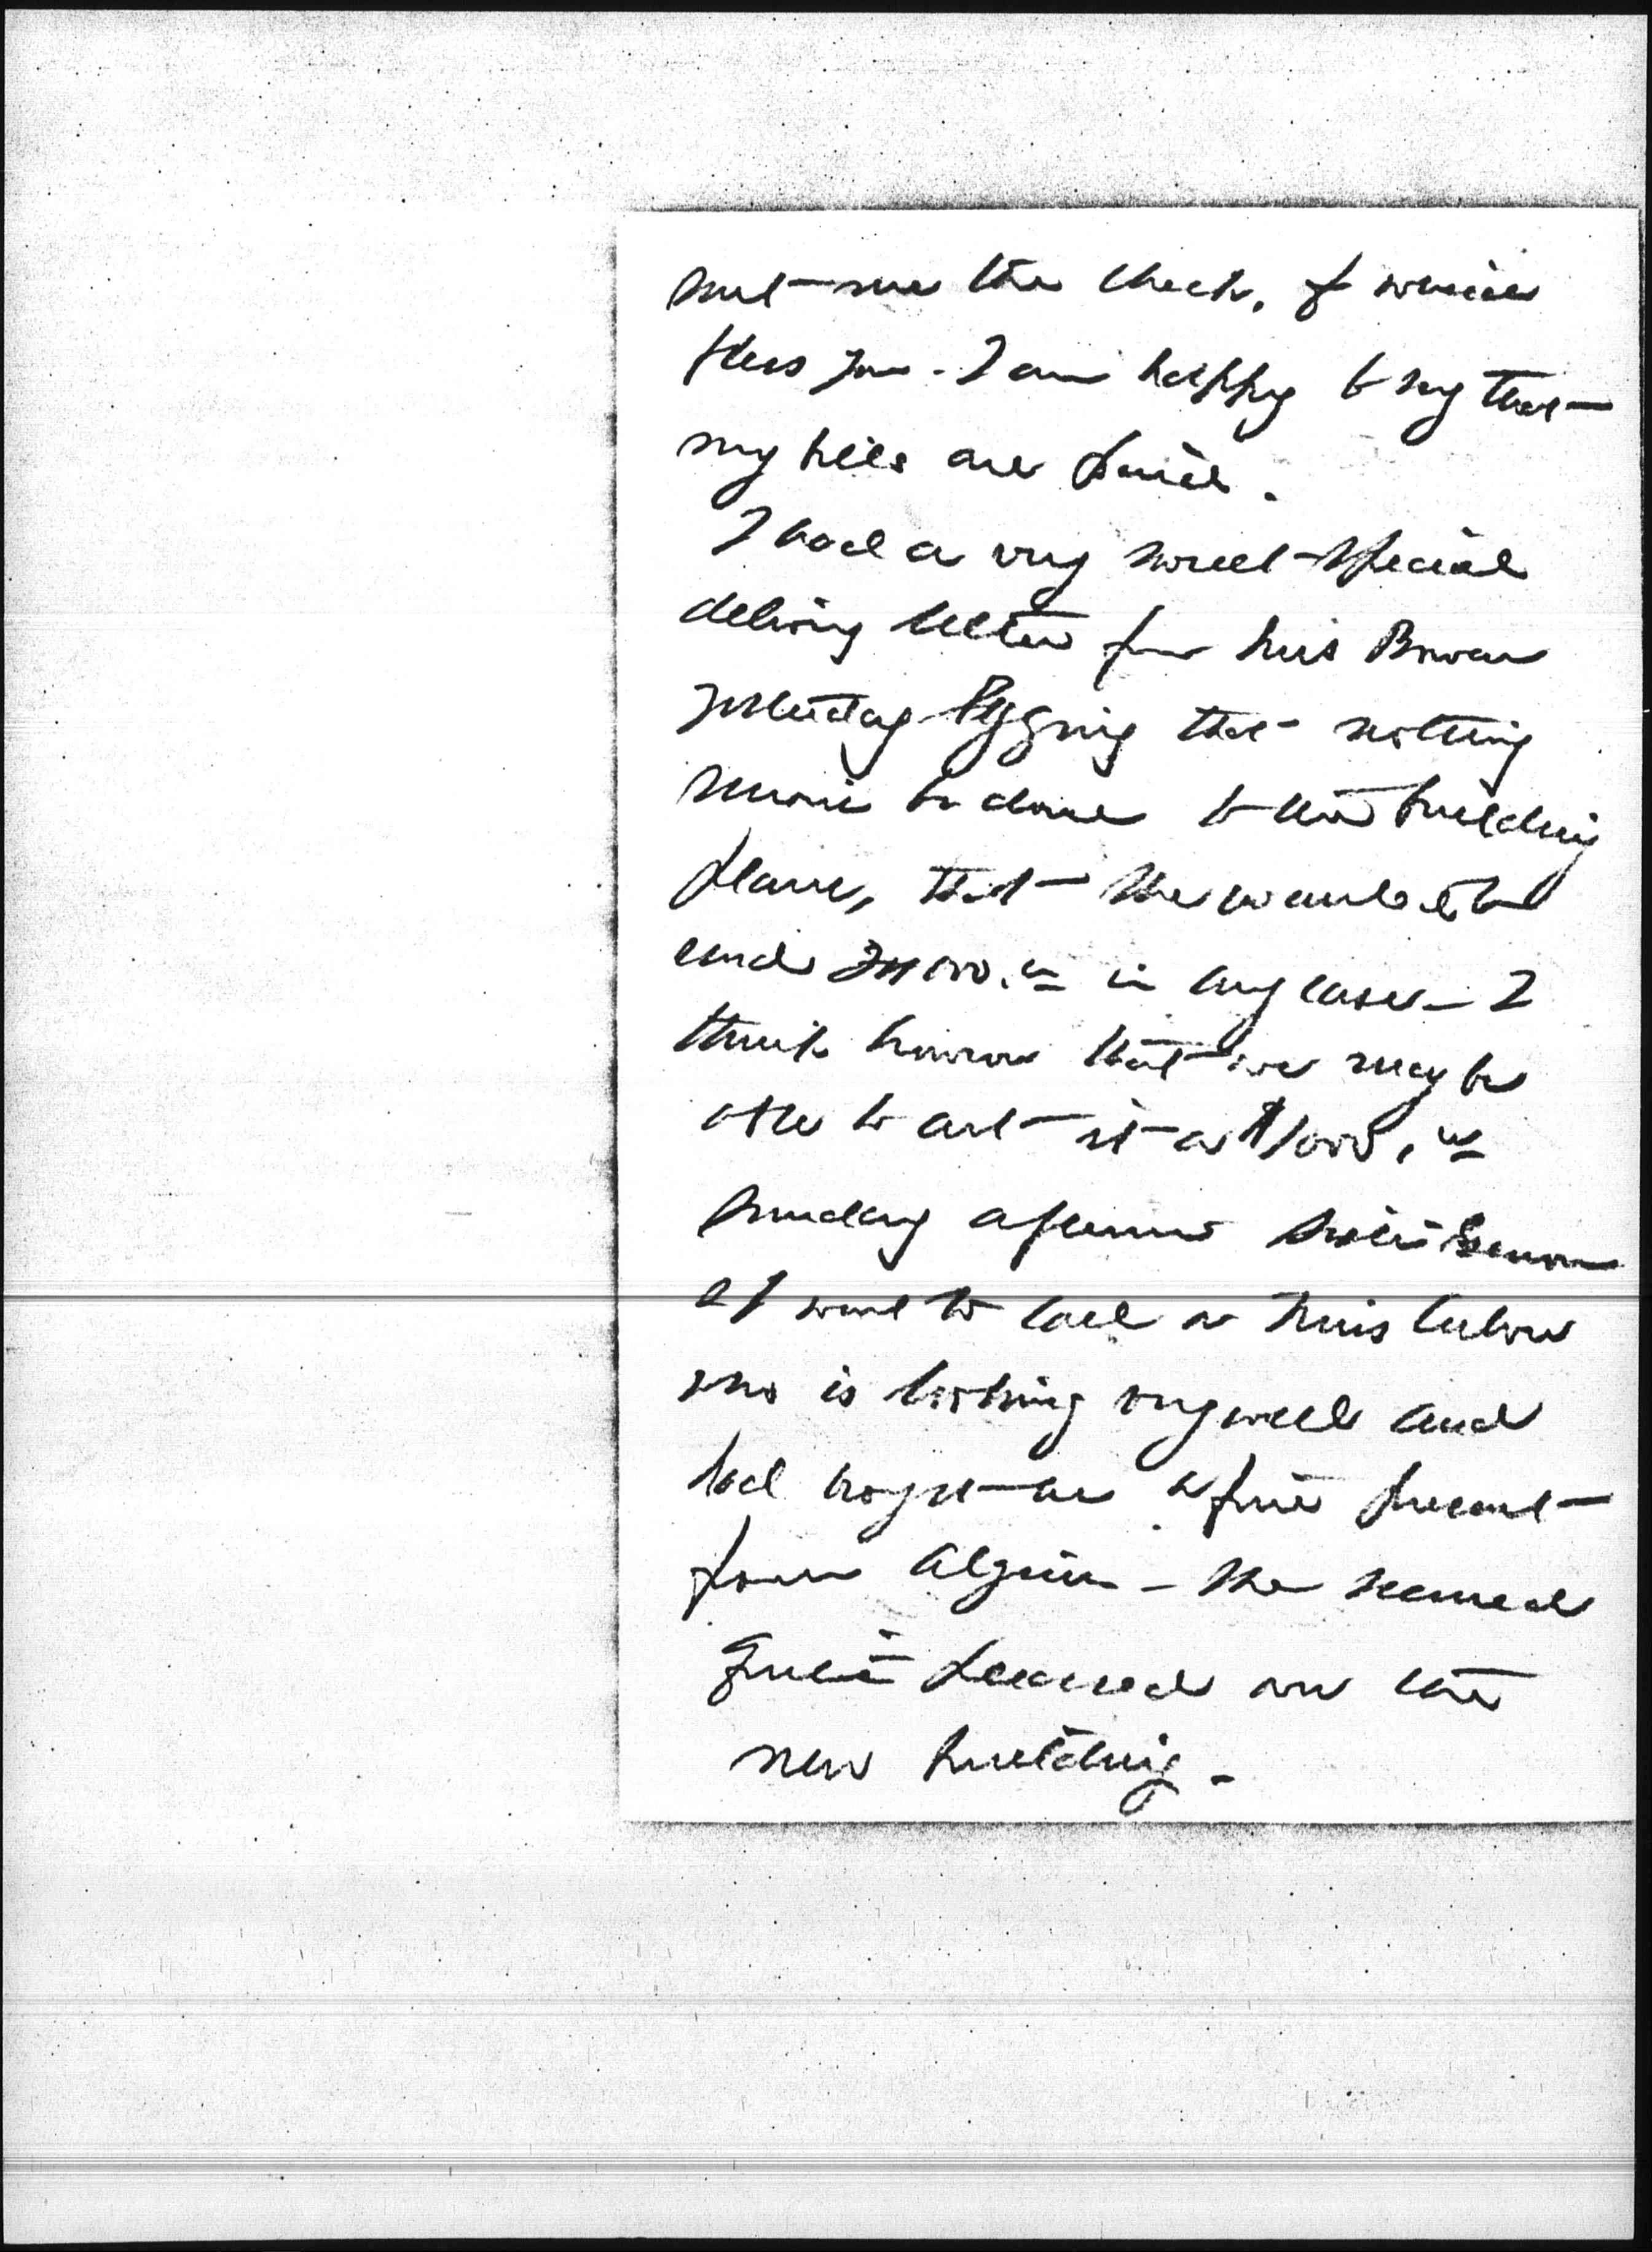 sent me the check, of which
bless you. I am happy to say that
my bills are paid.
I had a very sweet special
delivery letter from Miss Bowen
yesterday begging that nothing
more be done to the building
plans, that she would
send 000.00 in any case - I
think however that we may be
able to it as $1000.00
Sunday afternoon
& I went to call on Miss
who is looking very well and
had brought me a fine present
from Algiers - She seemed
quite pleased over the
new building -